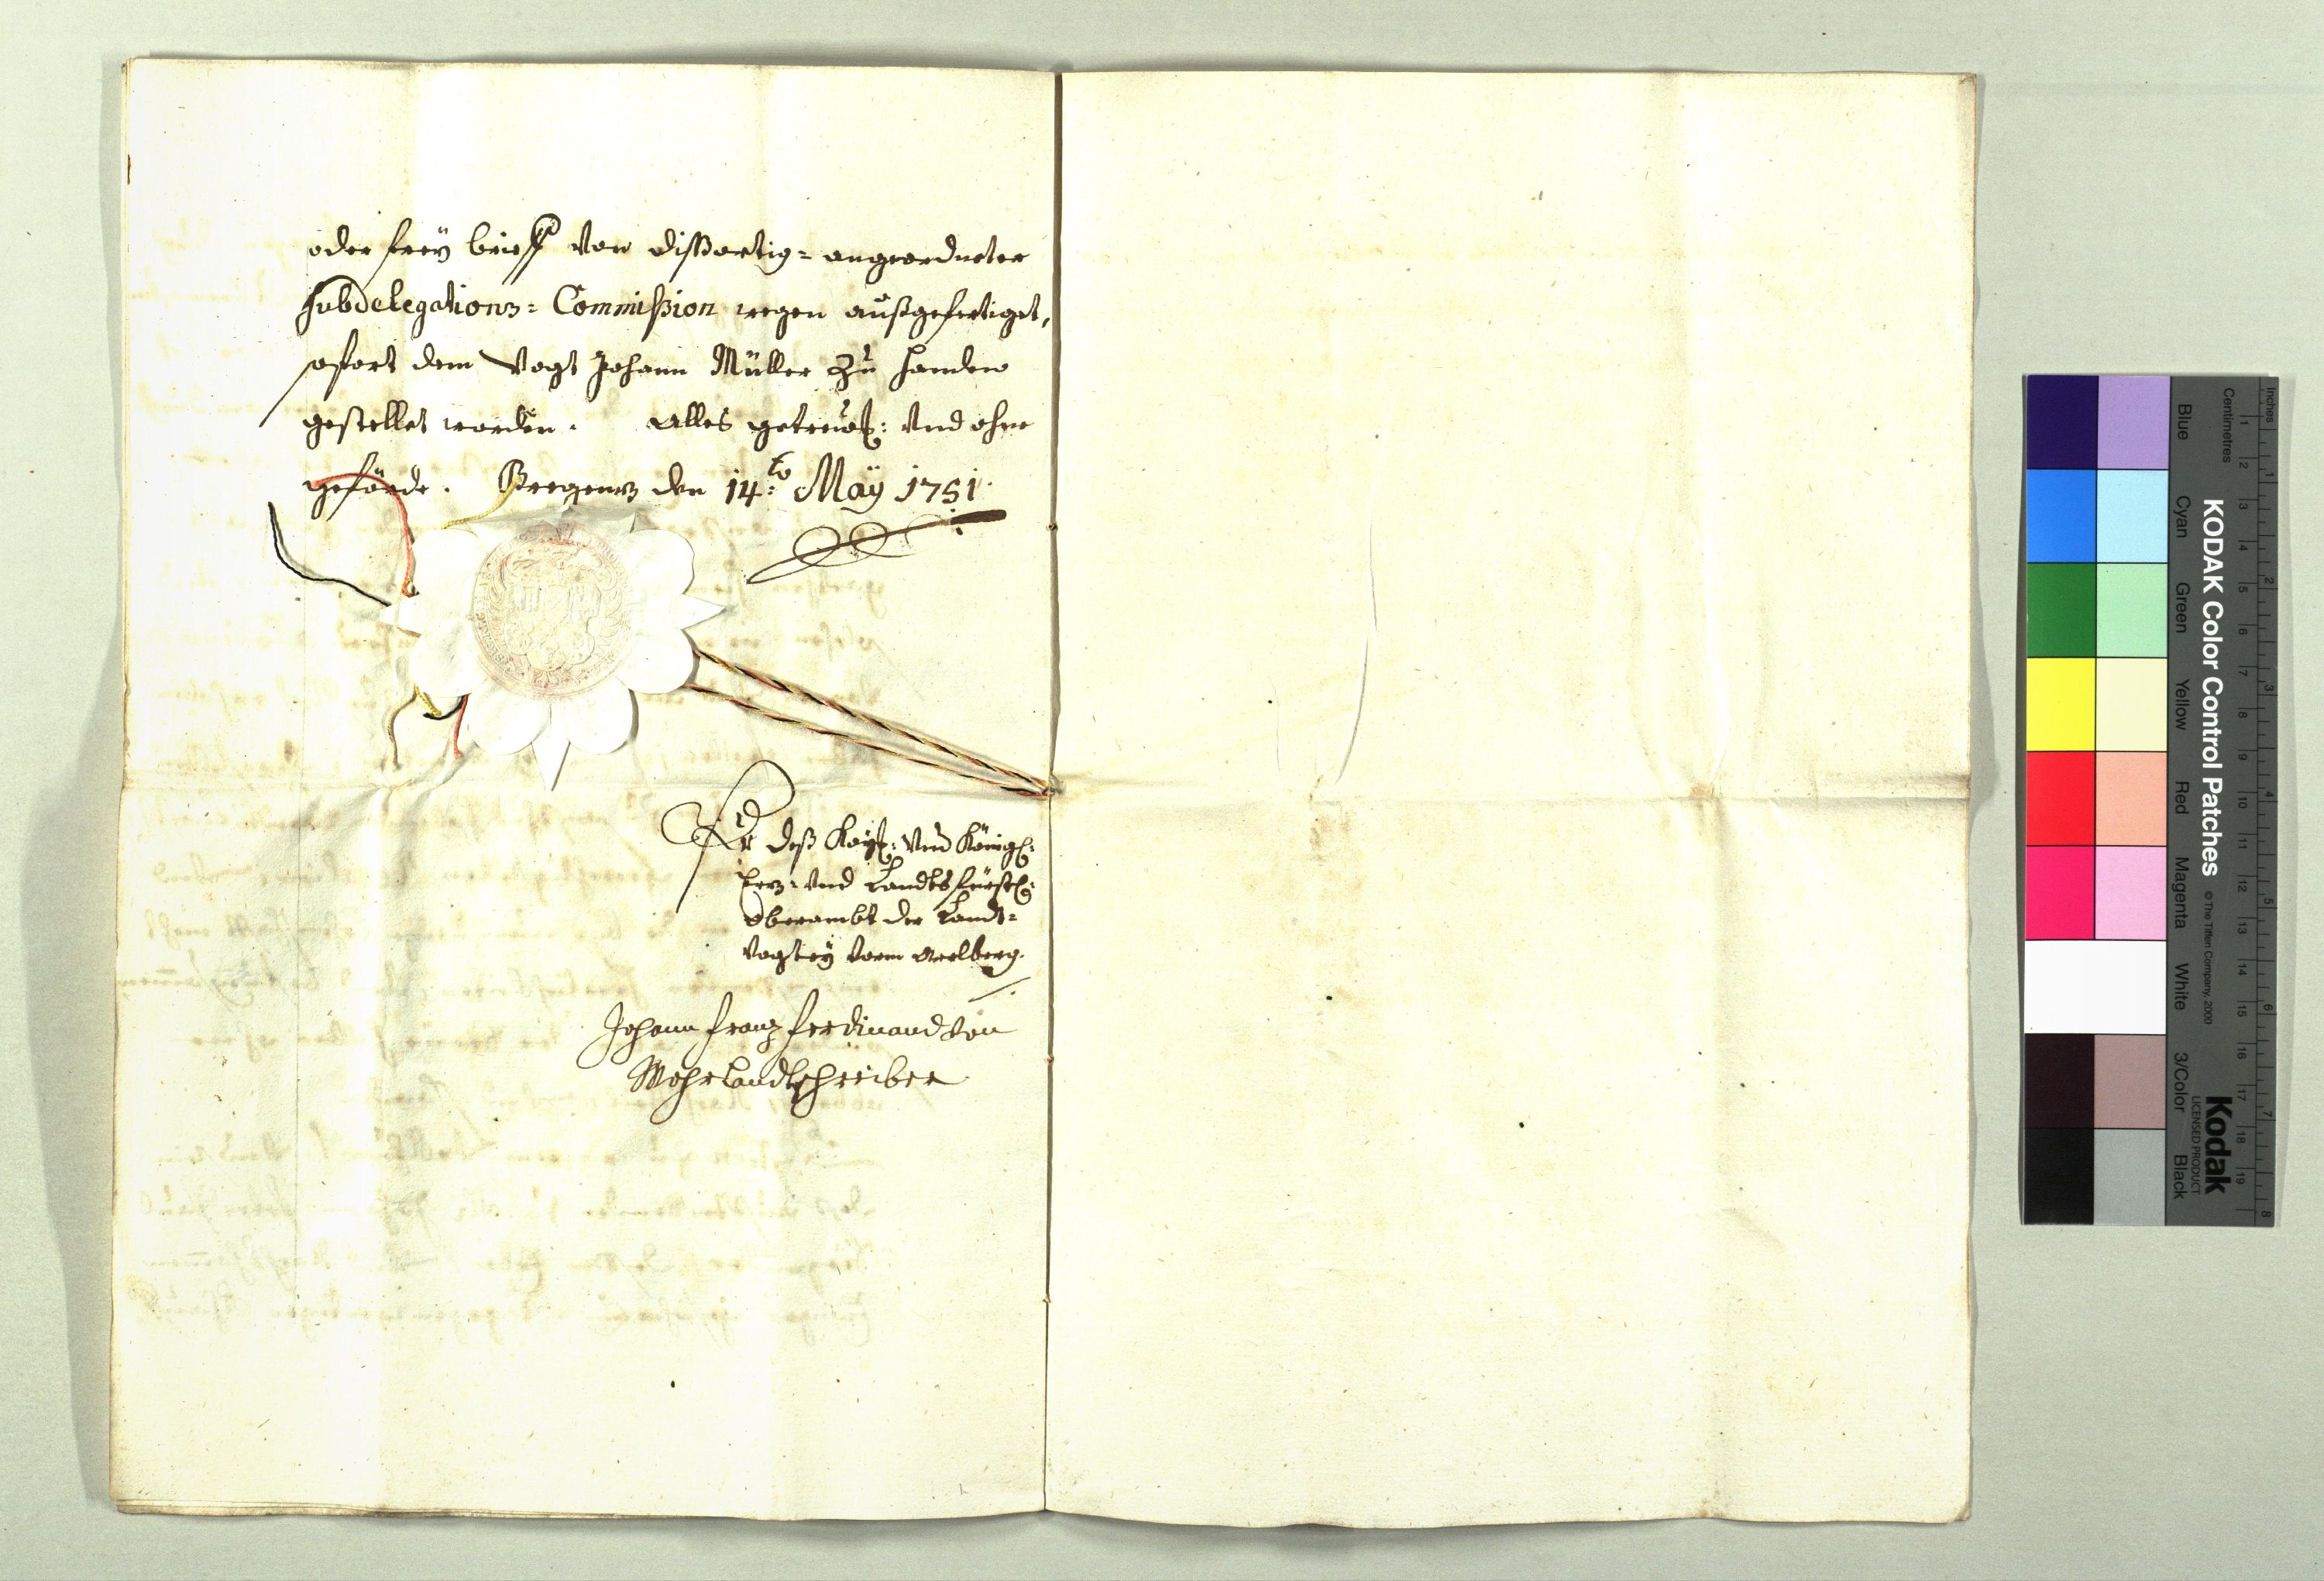 oder frey brieff von dißortig= angeordneter
Subdelegations= Commißion wegen außgefertiget,
sofort dem Vogt Johann Müller zu handen
gestellet worden. Alles getreul: und ohne
gefärde. Bregenz den 14:to May 1751.
Kr deß Kayl: und Königl:
Erz= und Landtsfürstl:
Oberambt der Landt=
Vogtey vorm Arelberg.
Johann Franz Ferdinand von
Mohr Landtschreiber
KODAK Color Control Patches
© The Tiffen Company, 2000
Kodak
LICENSED PRODUCT
Blue Cyan Green Yellow Red Magenta White 3/Color Black
Inches 1 2 3 4 5 6 7 8
Centimetres 1 2 3 4 5 6 7 8 9 10 11 12 13 14 15 16 17 18 19